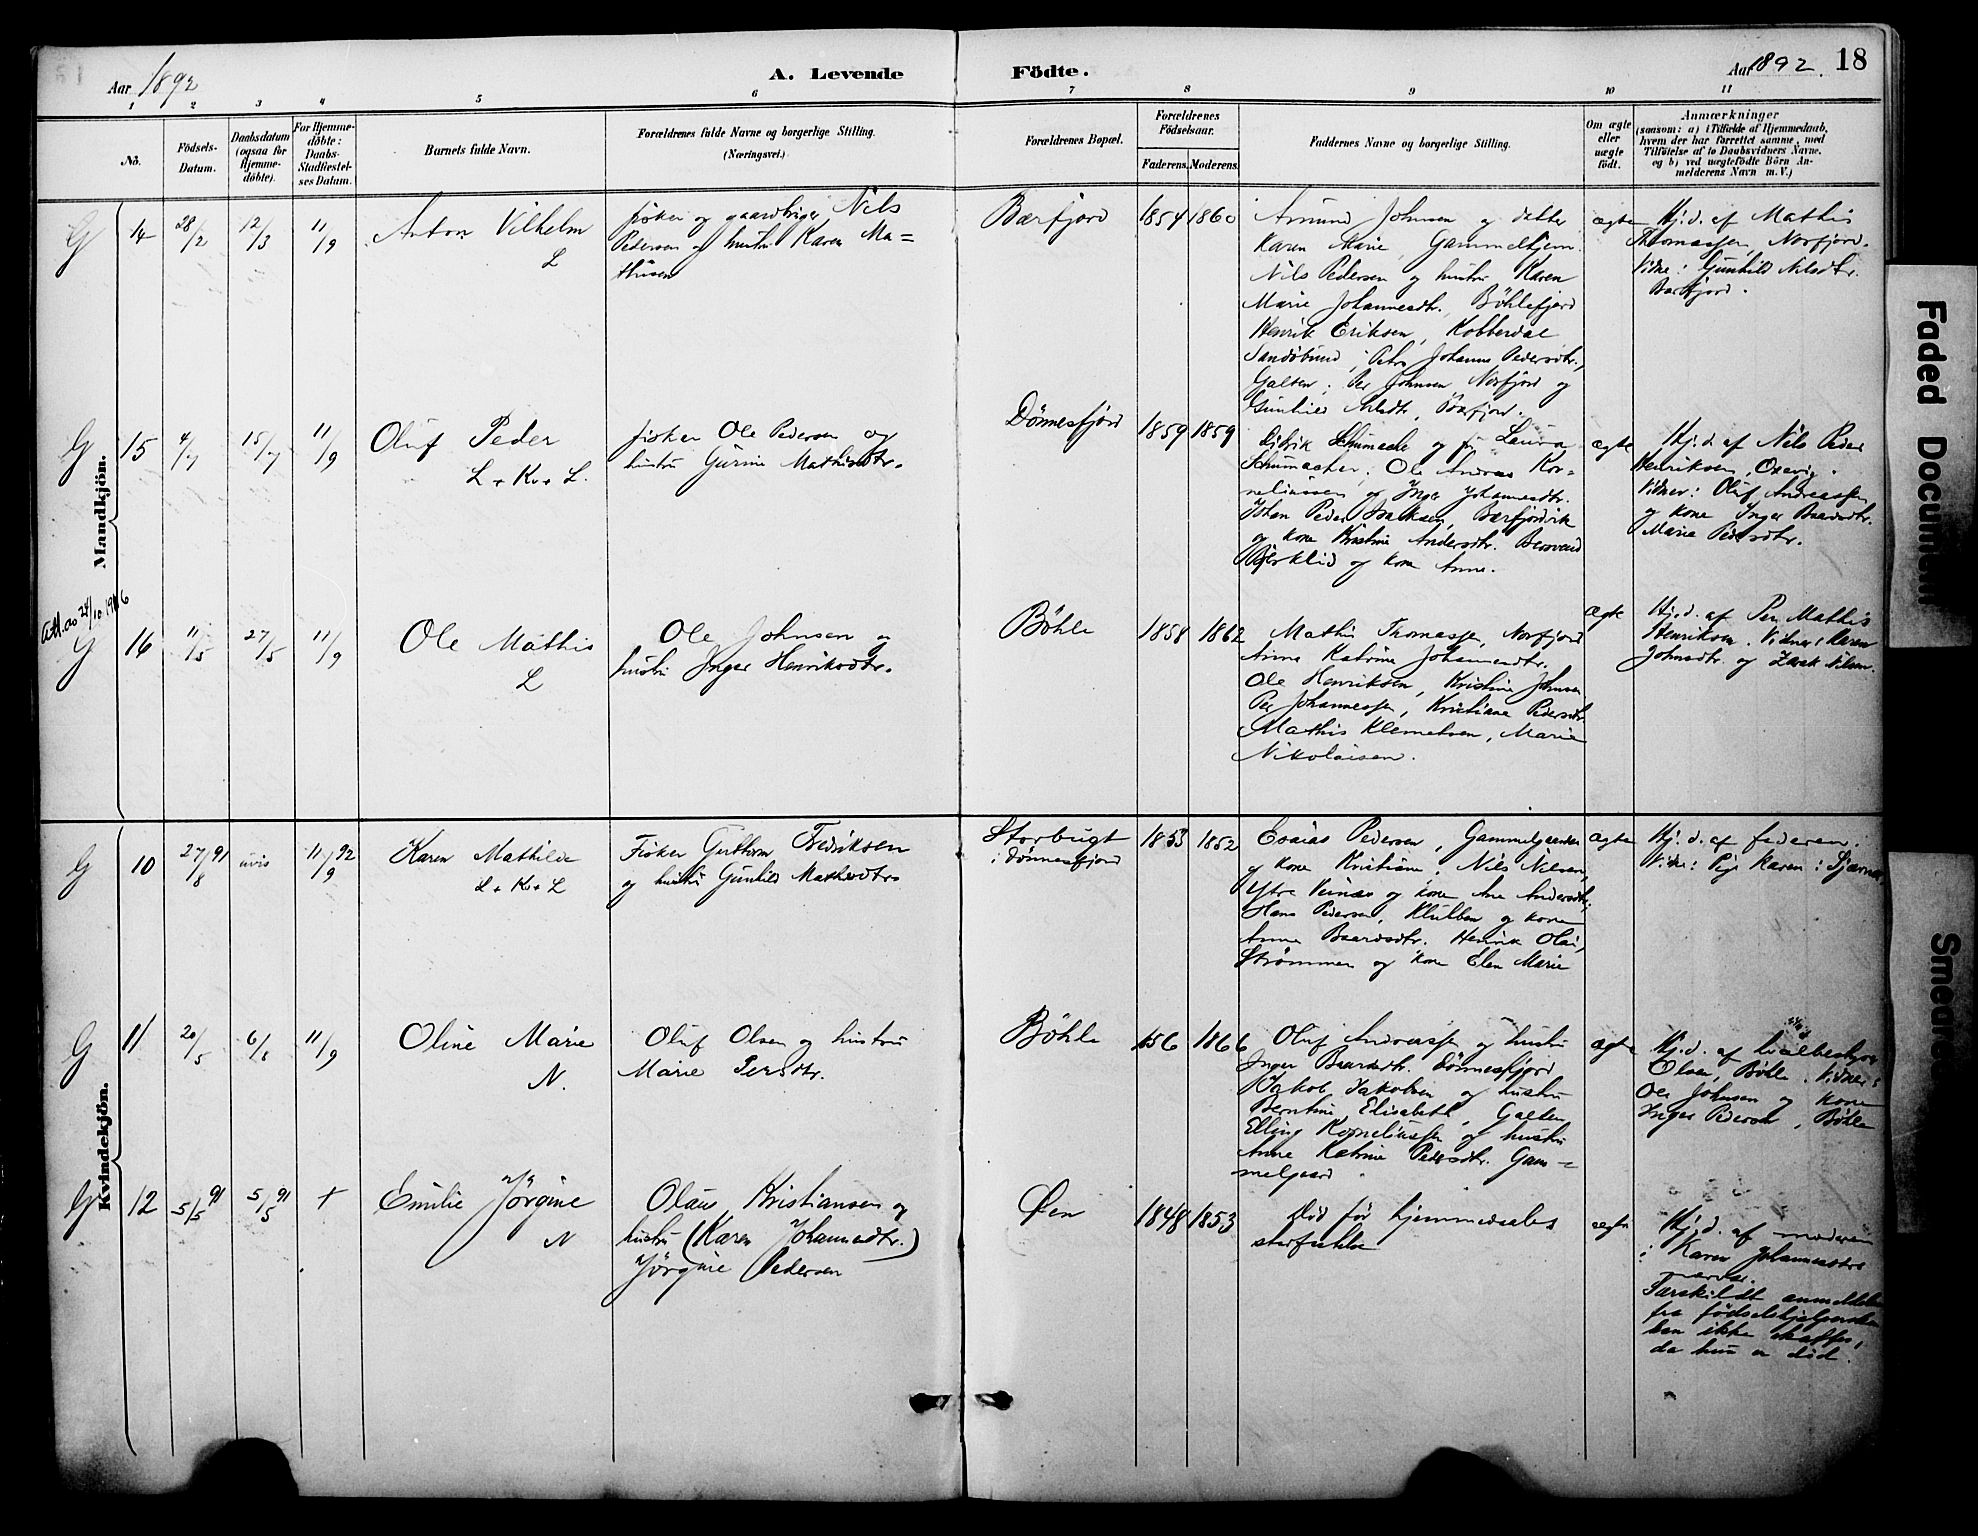 Aar 1892
A. Levende Födte.
Aar 1892. 18
1 2 3 4 5 6 7 8 9 10 11
No.
Födsels-Datum.
Daabsdatum (ogsaa for Hjemme-döbte).
For Hjemme-döbte: Daabs-Stadfæstel-ses Datum.
Barnets fulde Navn.
Forældrenes fulde Navne og borgerlige Stilling.
(Næringsvei.)
Forældrenes Bopæl.
Forældrenes Födselsaar.
Faderens. Moderens.
Faddernes Navne og borgerlige Stilling.
Om ægte eller uægte født.
Anmærkninger
(saasom: a) i Tilfælde af Hjemmedaab,
hvem der har forrettet samme, med
Tilföielse af to Daabsvidners Navne,
og b) ved uægtefödte Börn An-
melderens Navn m. V.)
Mandkjön.
G 14 28/2 12/3 11/9
Anton Vilhelm
L
fisker og gaardbruger Nils
Pedersen og hustru Karen Ma=
thisen
Bærfjord
1854 1860
Amund Johnsen og datter
Karen Marie, Gammelhjem.
Nils Pedersen og hustru Karen
Marie Johannesdtr., Böhlefjord
Henrik Eriksen, Kobberdal
Sandöbund, Petra Johanne Pedersdtr.,
Galten. Per Johnsen Norfjord og
Gunhild Nilsdtr, Bærfjord.
ægte
Hj.d. af Mathis
Thomassen, Norfjord.
Vidne: Gunhild Nilsdtr.
Bærfjord.
G 15 4/7 15/7 11/9
Oluf Peder
L + Kv + L.
fisker Ole Pedersen og
hustru Gurine Mathisdtr.
Dönnesfjord
1859 1859
Didrik Schumacher og fru Laura
Schumacher, Ole Andreas Kor=
neliussen og Inger Johannesdtr.
Johan Peder Isaksen, Bærfjordvik
og kone Kristine Andersdtr.
Bjerklid og kone Anne.
ægte
Hj.d. af Nils Peder
Henriksen,
Vidner: Oluf Andreassen
og kone Inger Baardsdtr.
Marie Pedersdtr.
Att.
G 16 11/5 27/5 11/9
Ole Mathis
L
Ole Johnsen og
hustru Inger Henriksdtr.
Böhle
1858 1862
Mathis Thomassen, Norfjord
Anne Katrine Johannesdtr.
Ole Henriksen, Kristine Johnsen
Per Johannessen, Kristiane Pedersdtr.
Mathis Klemetsen, Marie
Nikolaisen.
ægte
Hj.d. af Per Mathis
Henriksen. Vidner: Karen
Johnsdtr. og Zarak Nilsen.
Kvindekjön.
G 10 27/8 91 uvis 11/9 92
Karen Mathilde
L + Kv + L
Fisker Guttorm Fredriksen
og hustru Gunhild Mathisdtr.
Storbugt
i Dönnesfjord
1853 1852
Esaias Pedersen, Gammelgaarden
og kone Kristiane, Nils Nilsen,
Ytre Veines og kone Ane Andersdtr.
Hans Pedersen, Klubben og kone
Anne Baardsdtr. Henrik Olai,
Strömmen og kone Elen Marie
ægte
Hj.d. af faderen.
Vidne: Pige Karen i Stjernö.
G 11 20/5 6/6 11/9
Oline Marie
N.
Oluf Olsen og hustru
Marie Persdtr.
Böhle
1856 1866
Oluf Andreassen og hustru
Inger Baardsdtr. Dönnesfjord
Jakob Jakobsen og hustru
Berntine Elisabeth, Galten
Elling Korneliussen og hustru
Anne Katrine Pedersdtr. Gam=
melgaard.
ægte
Hj.d. af
Olsen, Böhle. Vidner:
Ole Johnsen og kone
Inger Pedersen, Böhle
G 12 5/5 91 5/5 91 +
Emilie Jörgine
N
Olaus Kristiansen og
hustru (Karen Johannesdtr.)
Jörgine Pedersen
Öen
1848 1853
död för hjemmedaabs
stadfestelse
ægte
Hj.d. af moderen
i Karen Johannesdtrs
nærvær.
Særskildt anmeldelse
fra födselshjælpersken
kan ikke skaffes,
da hun er död.
Faded Document
Smeared